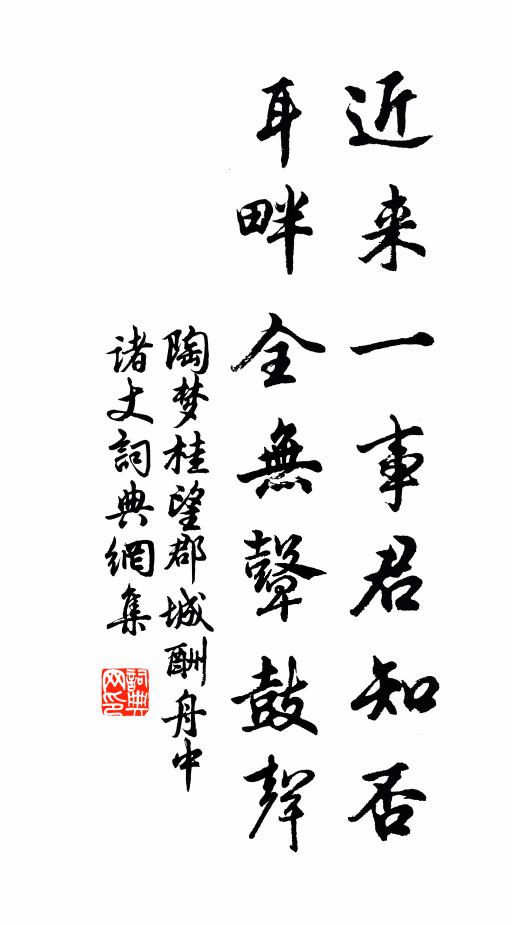 近来一事君知否
耳畔全無鼙鼓聲
陶梦桂望郡城酬舟中
诸丈詞典網集
詞典网印